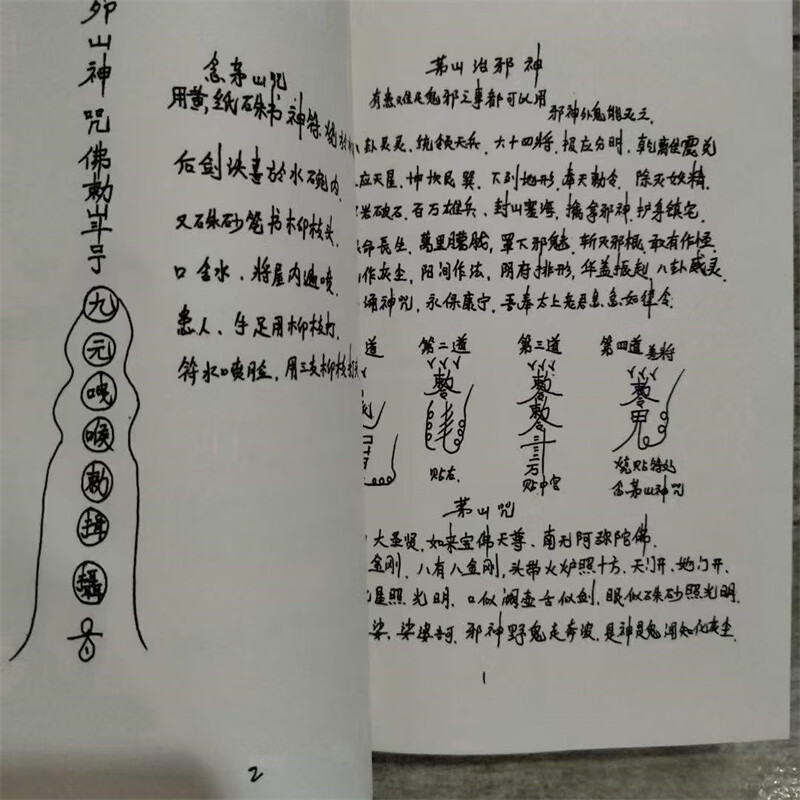 茅山治邪神
有患难是鬼邪之事都可以用
邪神外鬼能灭之
卦灵灵、统领天兵、六十四将、报应分明、乾离俱震兑
应天星、坤坎艮巽、下列地形、奉天敕令、除灭妖精、
岩破石、百万雄兵、封山塞海、擒拿邪神、护身镇宅、
命長生、萬里朦胧、罩下邪魅、斩灭邪根、敢有作怪、
作灰尘、阳间作法、阴府排形、华盖振起、八卦威灵、
诵神咒、永保康宁、吾奉太上老君急急如律令、
道 第二道 第三道 第四道
贴右 贴中宫
念茅山神咒
茅山咒
大圣贤、如来宝佛天尊、南无阿弥陀佛、
金刚、八有八金刚、头带火炉照十方、天门开、地门开、
星照光明、口似湖壶舌似剑、眼似硃砂照光明、
娑、娑婆訶、邪神野鬼走奔波、是神是鬼闻知化灰尘、
1
山神咒佛敕
九
元
唵
喉
敕
攝
念茅山咒
用黄纸硃书神符
后剑诀書於水碗内、
又硃砂笔书柳枝头、
口含水、将屋内遍喷、
患人、手足用柳枝打、
符水口喷脸、用三支柳枝
2